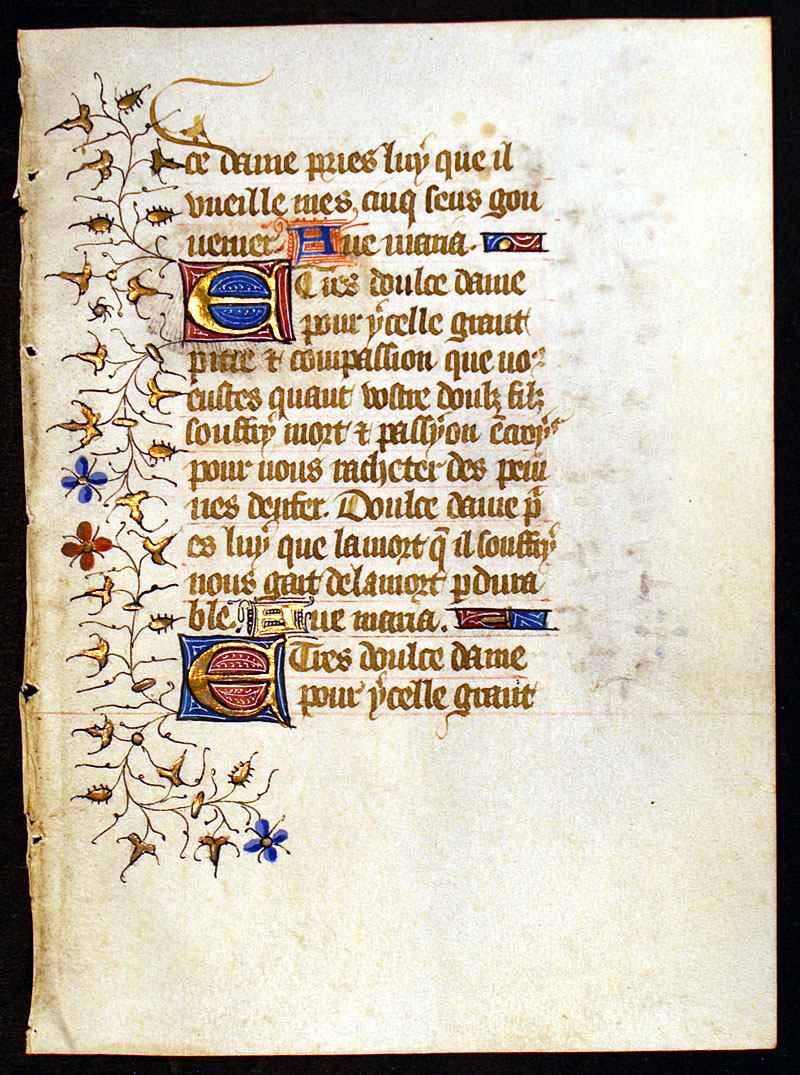 ce dame pries luy que il
vueille mes cinq sens gou
verner. Ave maria.
E Tres doulce dame
pour ycelle grant
pitie & compassion que vo9
eustes quant vostre doulz filz
souffry mort & passyon
pour nous racheter des pein
nes denfer. Doulce dame p̃
es luy que lamort q̃ il souffry
nous gart delamort pdura
ble. Ave maria.
E Tres doulce dame
pour ycelle grant